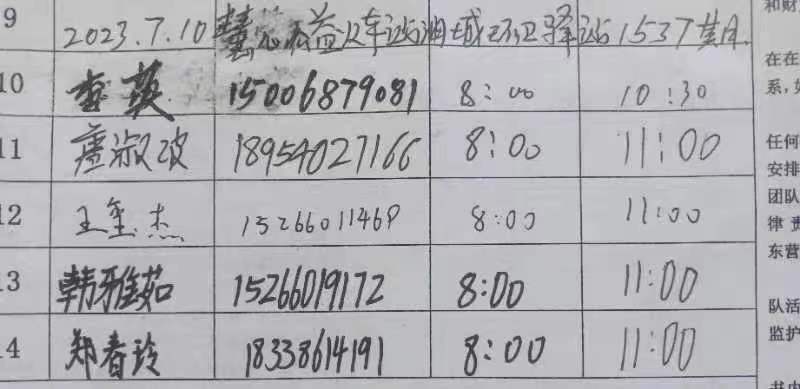 9 2023.7.10 慧心公益火车站油城环卫驿站1537黄月
和财
10 李英 15006879081 8:00 10:30
在在
系,如
11 唐淑波 18954027166 8:00 11:00
任何
安排
团队
12 王玺杰 1526601146P 8:00 11:00
律责
东营
13 韩雅茹 15266019172 8:00 11:00
队活
监护
14 郑春玲 18338614191 8:00 11:00